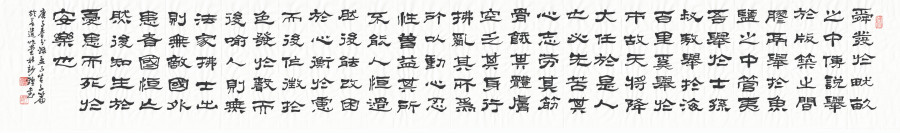 舜發於畎畝
之中傅說舉
於版築之間
膠鬲舉於魚
鹽之中管夷
吾舉於士孫
叔敖舉於海
百里奚舉於
市故天將降
大任於是人
也必先苦其
心志勞其筋
骨餓其體膚
空乏其身行
拂亂其所為
所以動心忍
性曾益其所
不能人恒過
然後能改困
於心衡於慮
而後作徵於
色發於聲而
後喻入則無
法家拂士出
則無敵國外
患者國恒亡
然後知生於
憂患而死於
安樂也